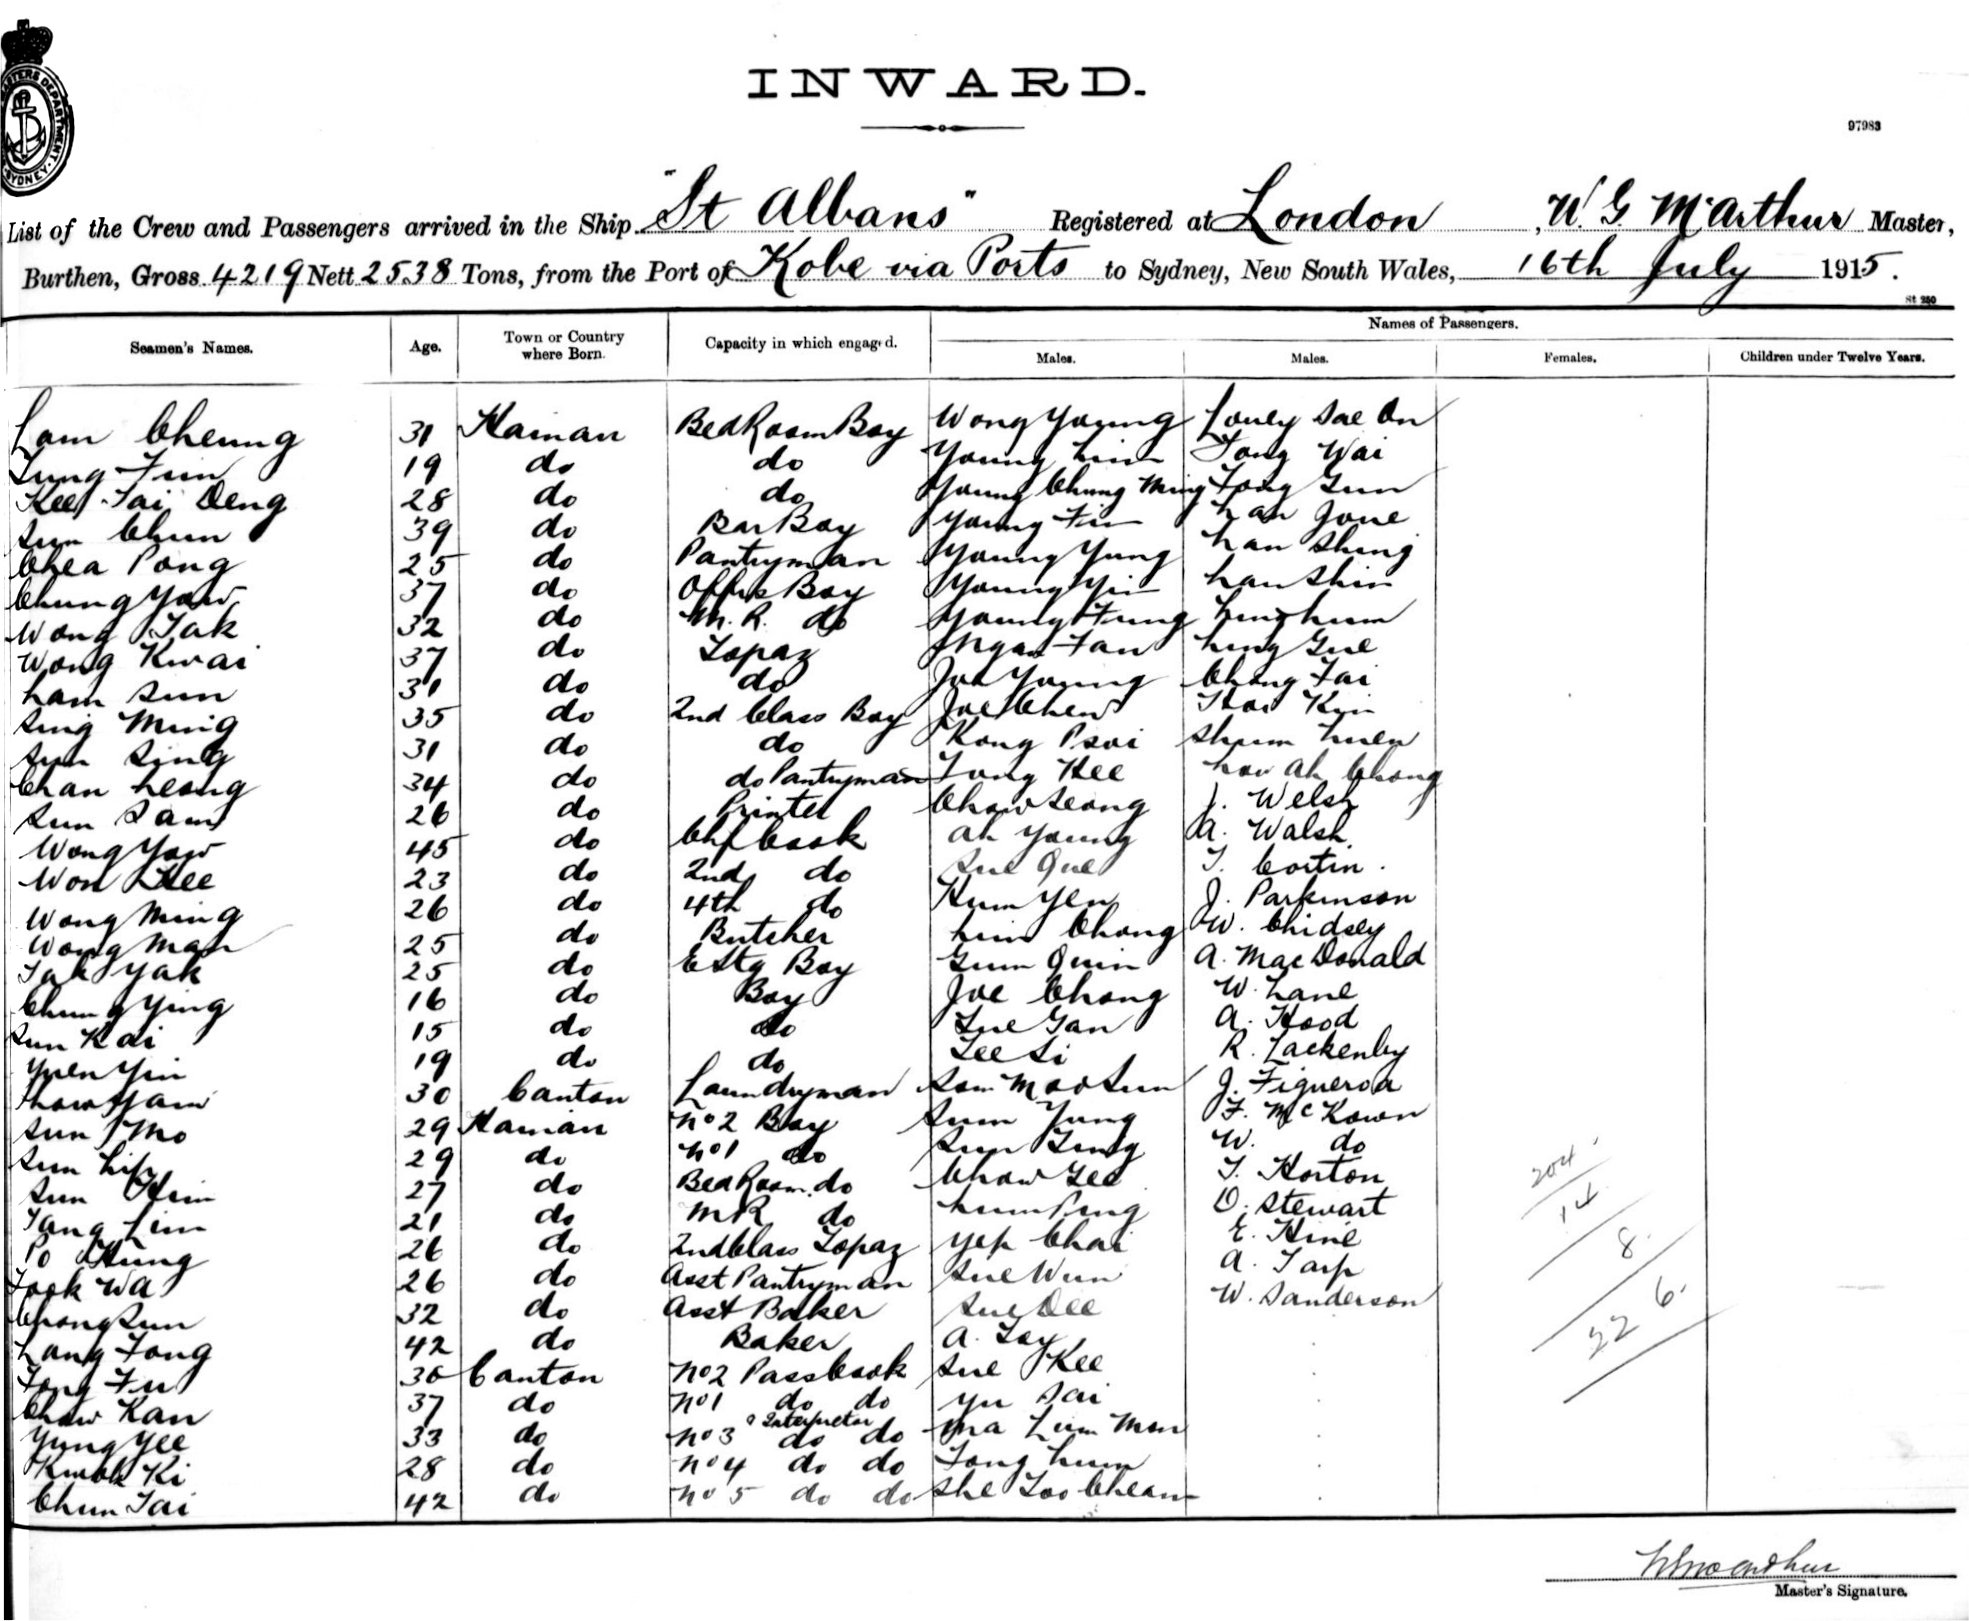 INWARD.
97983
List of the Crew and Passengers arrived in the Ship "St Albans" Registered at London, W. G McArthur Master,
Burthen, Gross 4219 Nett 2538 Tons, from the Port of Kobe via Ports to Sydney, New South Wales, 16th July 1915.
St 250
Seamen's Names. Age. Town or Country where Born. Capacity in which engaged. Names of Passengers.
Males. Males. Females. Children under Twelve Years.
Lam Cheung 31 Hainan BedRoom Boy Wong Young Louey Sae On
Tung Fun 19 do do Young Lim Tong Wai
Kee Tai Deng 28 do do Young Chung Ming Tong Gun
Sun Chun 39 do Bar Boy Young Tim Lan Jone
Chea Pong 25 do Pantryman Young Yung Lan Shing
Chung Yow 37 do Offrs Boy Young Yin Lan Shin
Wong Tak 32 do M. R. do Young Fung
Wong Kwai 37 do Topaz Fan Ling Gue
Lam Sun 31 do do Joe Young Chong Tai
Sing Ming 35 do 2nd Class Boy Joe Chew Kin
Sun Sing 31 do do Kong Psoi Shum Luen
Chan Leong 34 do do Pantryman Tong Hee Low Ah Chong
Sun Sam 26 do Printer Chow Leong J. Welsh
Wong Yow 45 do Chf Cook Ah Young A. Walsh
Won Lee 23 do 2nd do Sue Que T. Costin.
Wong Ming 26 do 4th do Hum Yen J. Parkinson
Wong Man 25 do Butcher Lim Chong W. Chidsey
Tak Yak 25 do E Stg Boy Gum Quin A. MacDonald
Chung Ying 16 do Boy Joe Chong W. Lane
Sun Kai 15 do do Lue Gan A. Hood
Yuen Yin 19 do do Lee Li R. Lackenby
30 Canton Laundryman Som Moo Sun J. Figueroa
Sun Mo 29 Hainan No 2 Boy Sum Yung F. McKown
Sun Lip 29 do No 1 do Sun Gung W. do
Sun Him 27 do BedRoom do Chow Gee T. Horton
Tang Lim 21 do M R do Lum Ping D. Stewart
Po Hung 26 do 2nd Class Topaz Yep Chai E. Hine
Fook Wa 26 do Asst Pantryman Sue Wun A. Tarp
Chong Sun 32 do Asst Baker Sue Dee W. Sanderson
Lang Fong 42 do Baker A. Loy
Tong Fu 36 Canton No 2 Pass Cook Sue Kee
Chow Kan 37 do No 1 do do Yu Sai
Yung Yee 33 do No 3 & Interpretor do do Ma Lum Mon
Kwok Ki 28 do No 4 do do Tong Lum
Chun Tai 42 do No 5 do do She Too Cheam
204
14
8.
22 6.
Master's Signature.